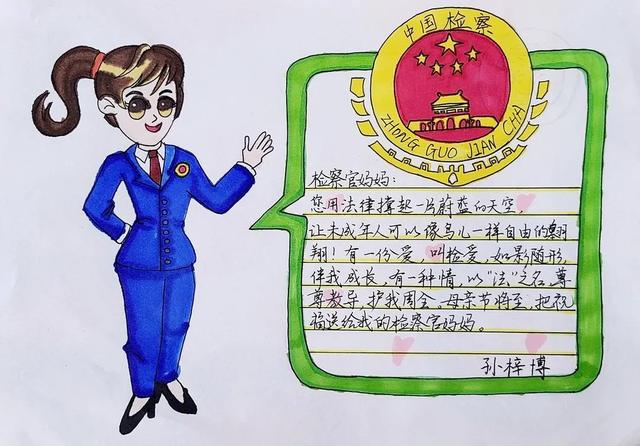 中国检察
ZHONG GUO JIAN CHA
检察官妈妈:
您用法律撑起一片蔚蓝的天空,
让未成年人可以像鸟儿一样自由的翱
翔!有一份爱,叫检爱,如影随形,
伴我成长,有一种情,以“法”之名,尊
尊教导,护我周全,母亲节将至,把祝
福送给我的检察官妈妈。
孙梓博